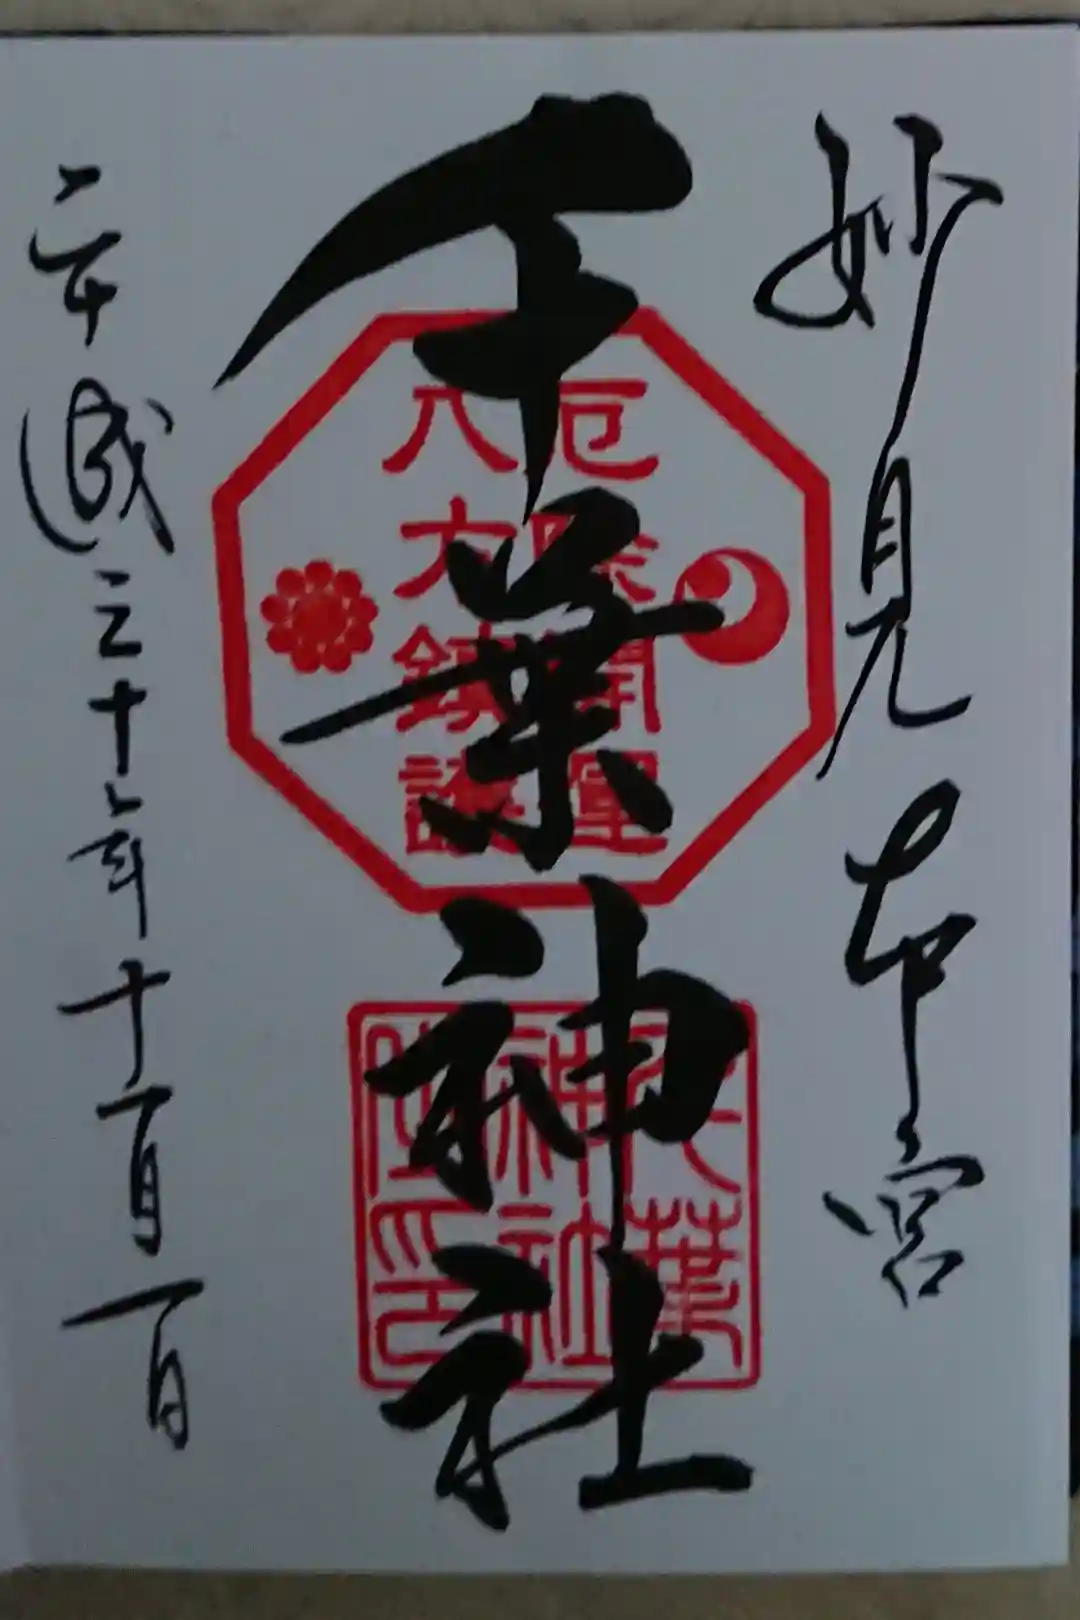 妙見本宮
千葉神社
厄除開運
八方鎮護
千葉
神社
之印
平成三十年十一月一日